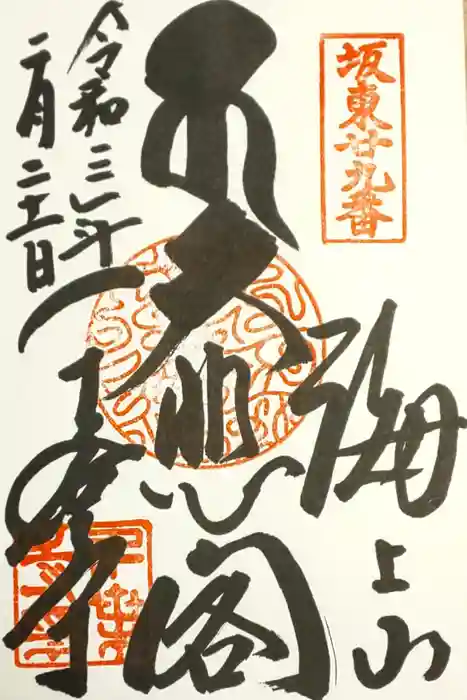 坂東廿九番
海上山
大悲閣
千葉寺
令和三年
二月二十一日